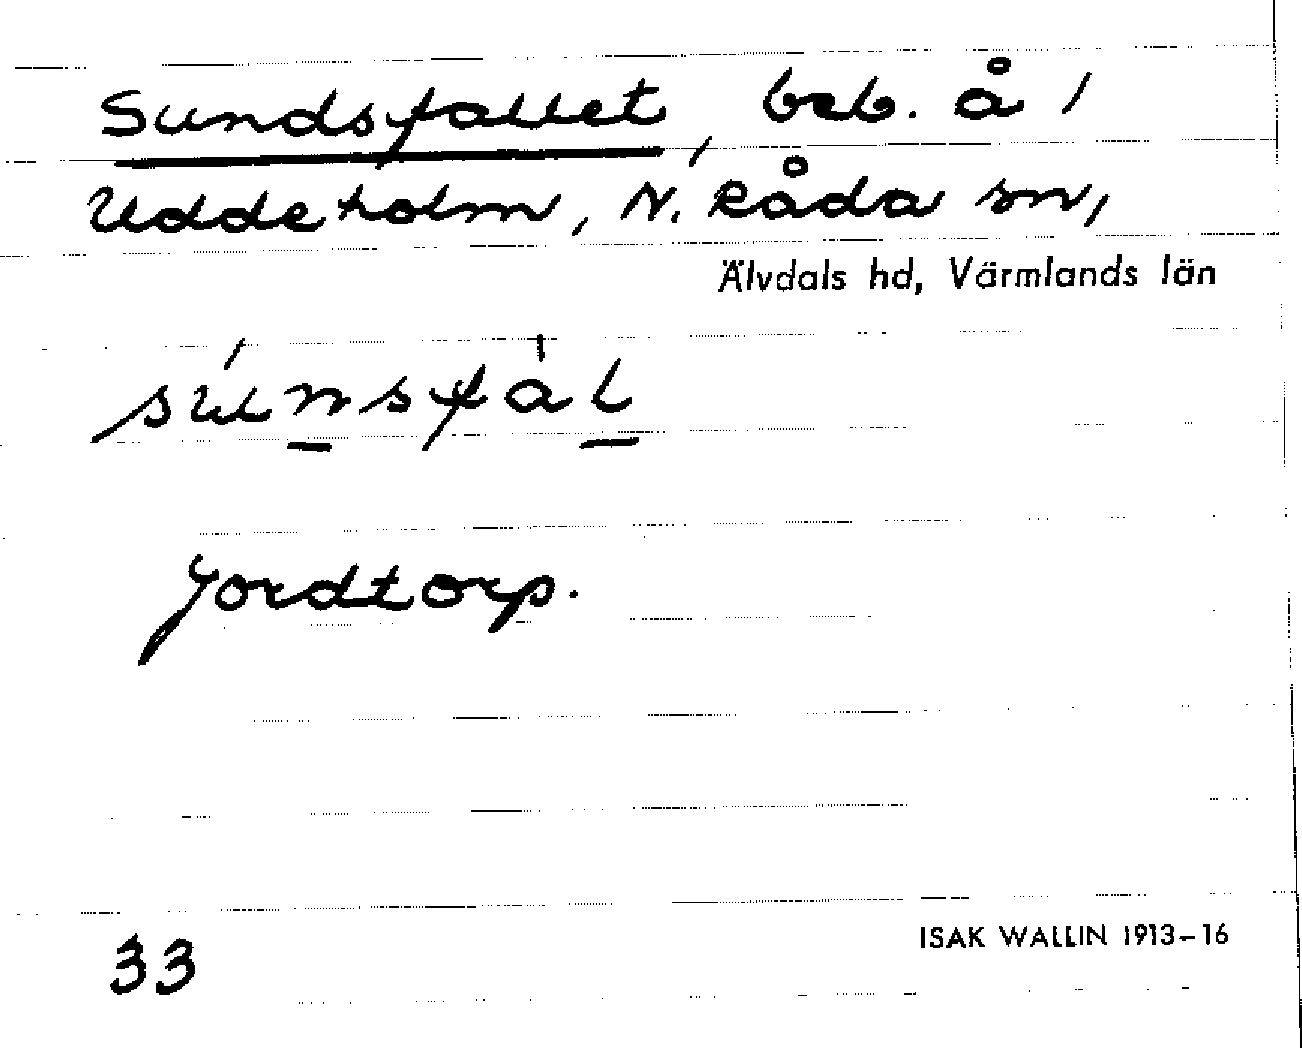 Sundsfallet, beb. å 1
Uddeholm, N. Råda sn,
Älvdals hd, Värmlands län
su̍n̲sfa̍l̲
Jordtorp.
33
ISAK WALLIN 1913-16